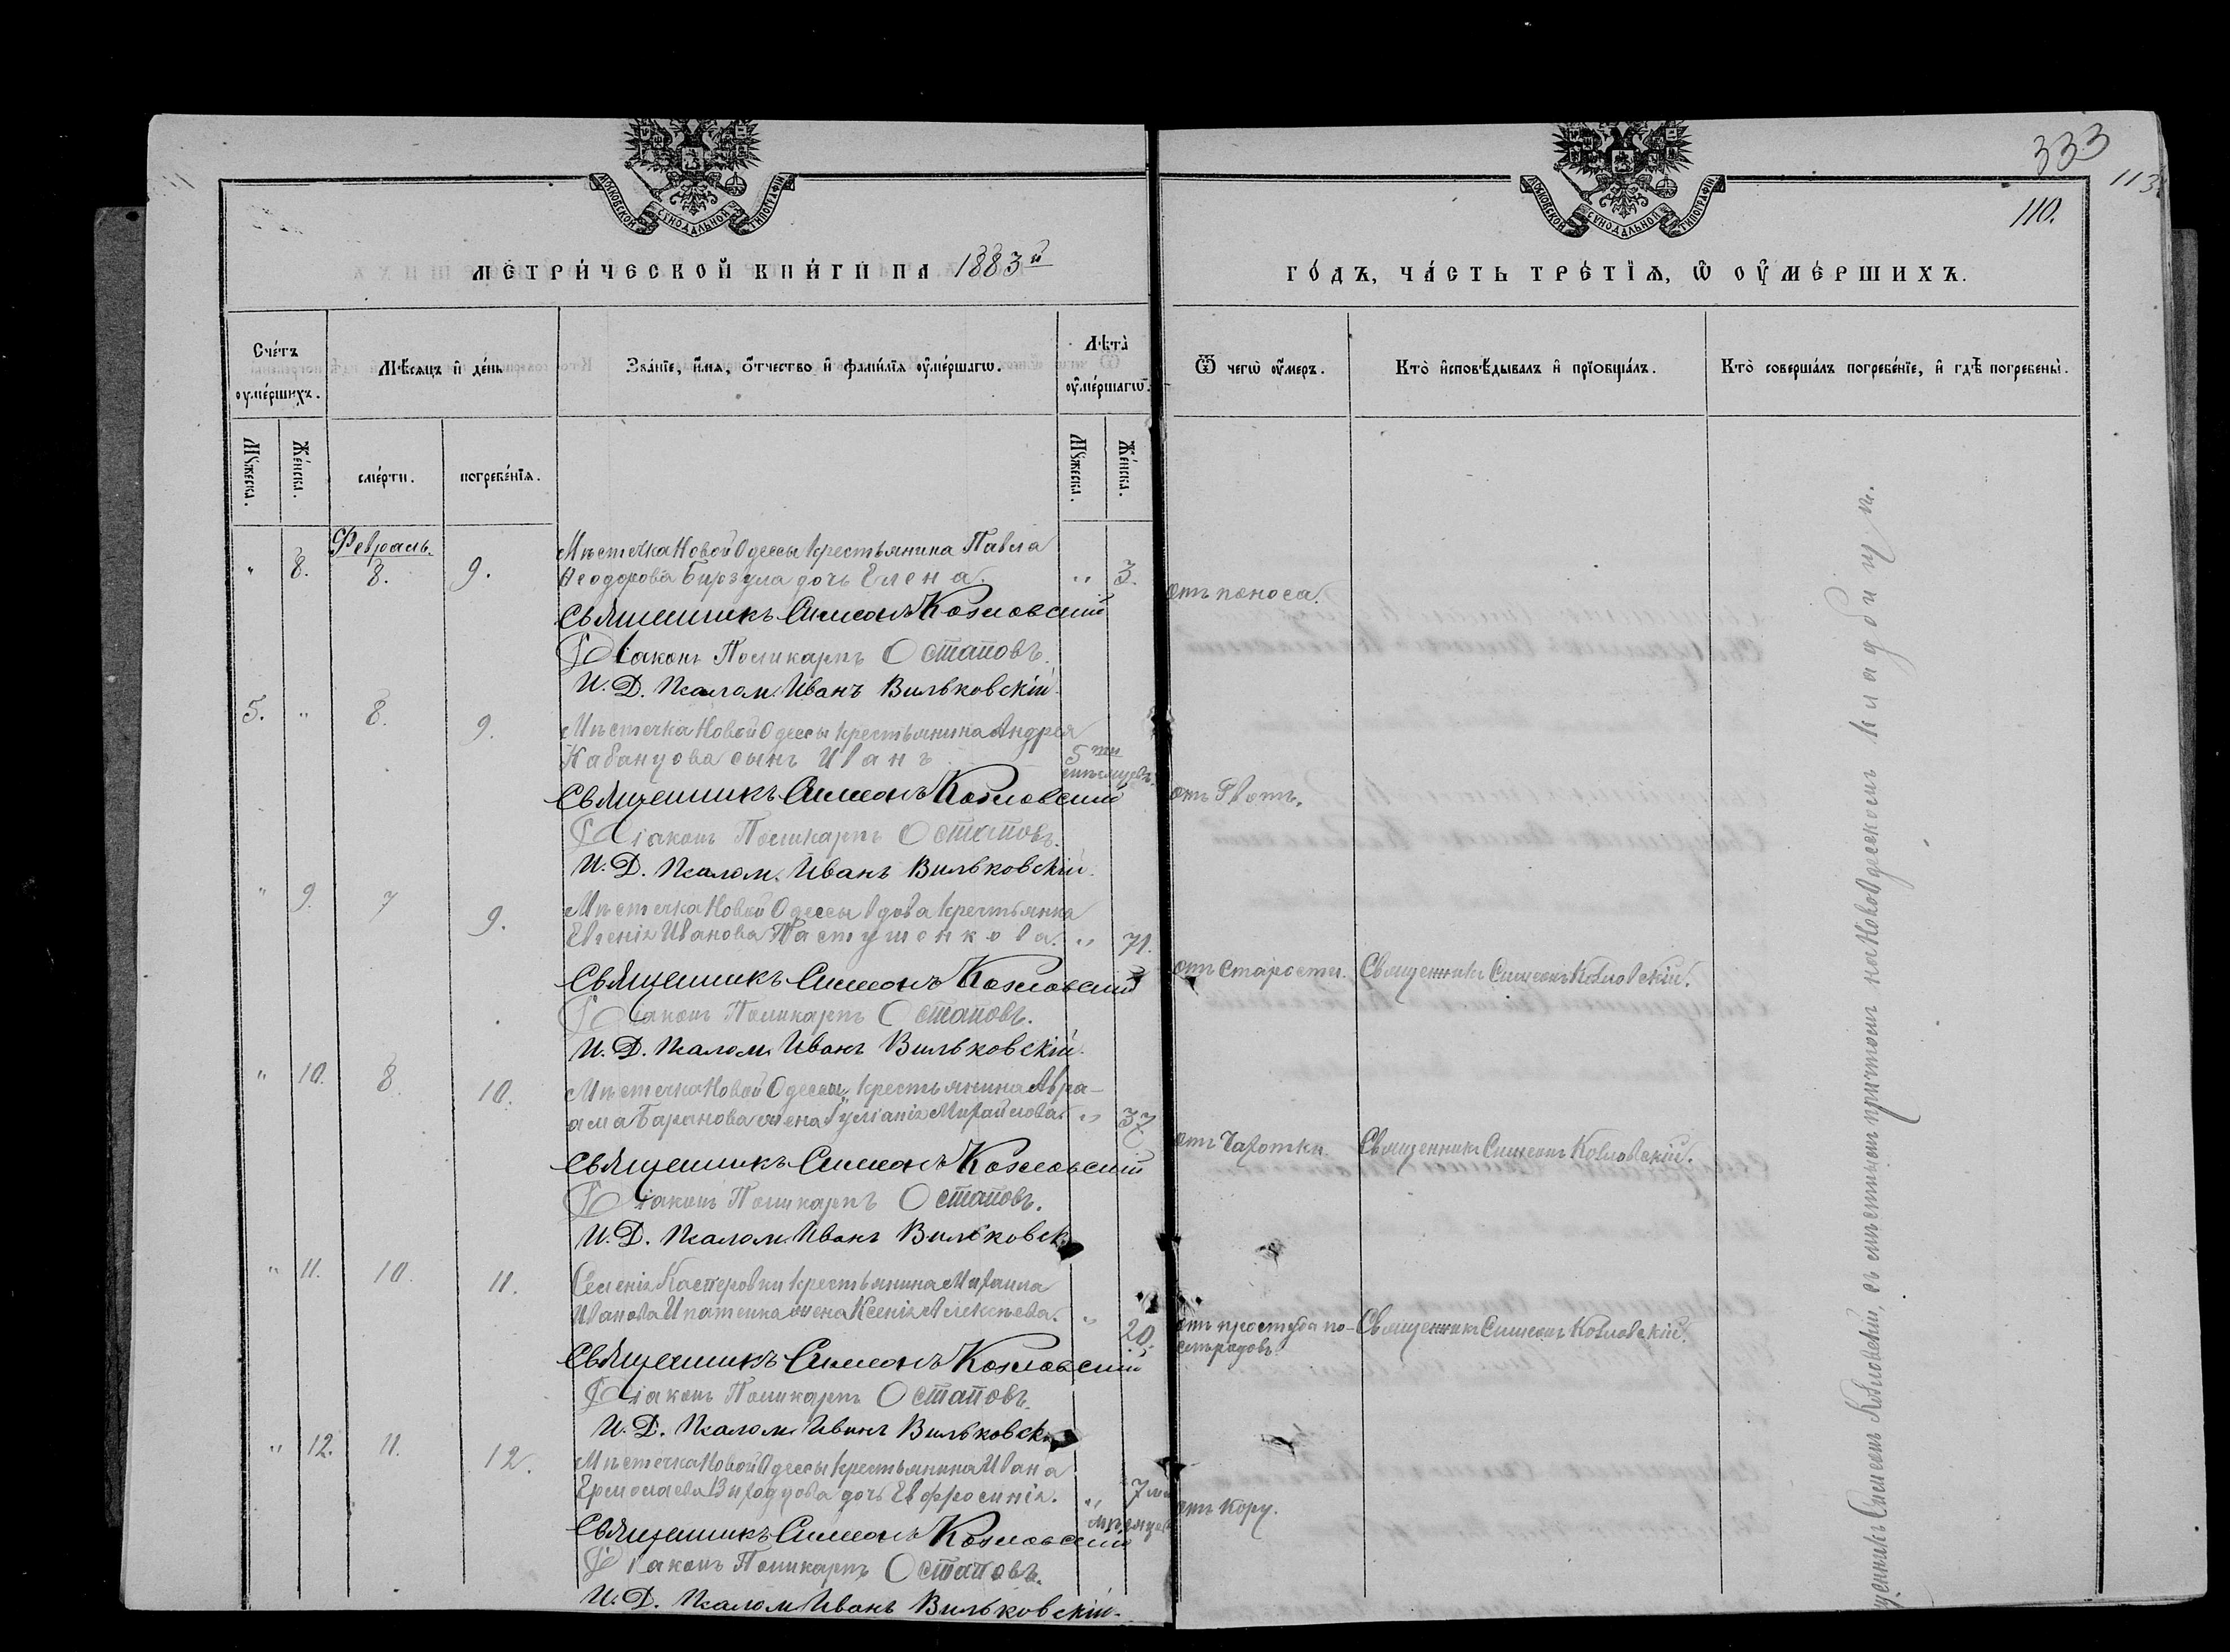 333
113
110.
МОСКОВСКОЙ СѴНОДАЛЬНОЙ ТИПОГРАФІИ
МОСКОВСКОЙ СѴНОДАЛЬНОЙ ТИПОГРАФІИ
МЕТРИ́ЧЕСКОЙ КНИ́ГИ НА 1883й
ГО́ДЪ, ЧА́СТЬ ТРЕ́ТІѦ, Ѡ ОУМЕ́РШИХЪ.
Сче́тъ оуме́ршихъ.
Мѣ́сяцъ и де́нь
Зва́ніе, и́мя, о́тчество и фами́лія оуме́ршагѡ.
Лѣта̀ оуме́ршагѡ.
Ѿ чегѡ̀ оу́меръ.
Кто̀ исповѣ́дывалъ и пріобща́лъ.
Кто̀ соверша́лъ погребе́ніе, и гдѣ̀ погребены̀.
Мꙋ́жеска.
Же́нска.
сме́рти.
погребе́нія.
Мꙋ́жеска.
Же́нска.
Февраль.
" 8. 8. 9. Мѣстечка Новой Одессы крестьянина Павла
Ѳеодорова Бирзула дочь Елена. " 3. отъ поноса.
Священникъ Симеонъ Козловский
Діаконъ Поликарпъ Остаповъ.
И. Д. Псалом. Иванъ Вильковскій.
5. " 8. 9. Мѣстечка Новой Одессы крестьянина Андрея
Кабанцова сынъ Иванъ 5ти мѣсяцевъ
Священникъ Симеонъ Козловский отъ Рвотъ.
Діаконъ Поликарпъ Остаповъ.
И. Д. Псалом. Иванъ Вильковскій.
" 9. 7 9. Мѣстечка Новой Одессы вдова крестьянка
Евгенія Иванова Пастушонкова. " 71.
отъ Старости. Священникъ Симеонъ Козловскій.
Священникъ Симеонъ Козловский
Діаконъ Поликарпъ Остаповъ.
И. Д. Псалом. Иванъ Вильковскій.
" 10. 8 10. Мѣстечка Новой Одессы крестьянина Авра-
ама Баранова жена Іуліанія Михайлова. " 37.
отъ Чахотки. Священникъ Симеонъ Козловскій.
Священникъ Симеонъ Козловский
Діаконъ Поликарпъ Остаповъ.
И. Д. Псалом. Иванъ Вильковск
" 11. 10. 11. Селенія Касперовки крестьянина Михаила
Иванова Ипатенка жена Ксенія Алексѣева. " 20.
отъ простуда по- Священникъ Симеонъ Козловскій.
слѣ родовъ
Священникъ Симеонъ Козловский
Діаконъ Поликарпъ Остаповъ.
И. Д. Псалом. Иванъ Вильковск
" 12. 11. 12. Мѣстечка Новой Одессы крестьянина Ивана
Ермолаева Виходцова дочь Евфросинія. " 7ми мѣсяцев
отъ кору.
Священникъ Симеонъ Козловский
Діаконъ Поликарпъ Остаповъ.
И. Д. Псалом. Иванъ Вильковскій.
щенникъ Симеонъ Козловскій, съ мѣстнымъ причтомъ на Новоодесскомъ кладбищи.